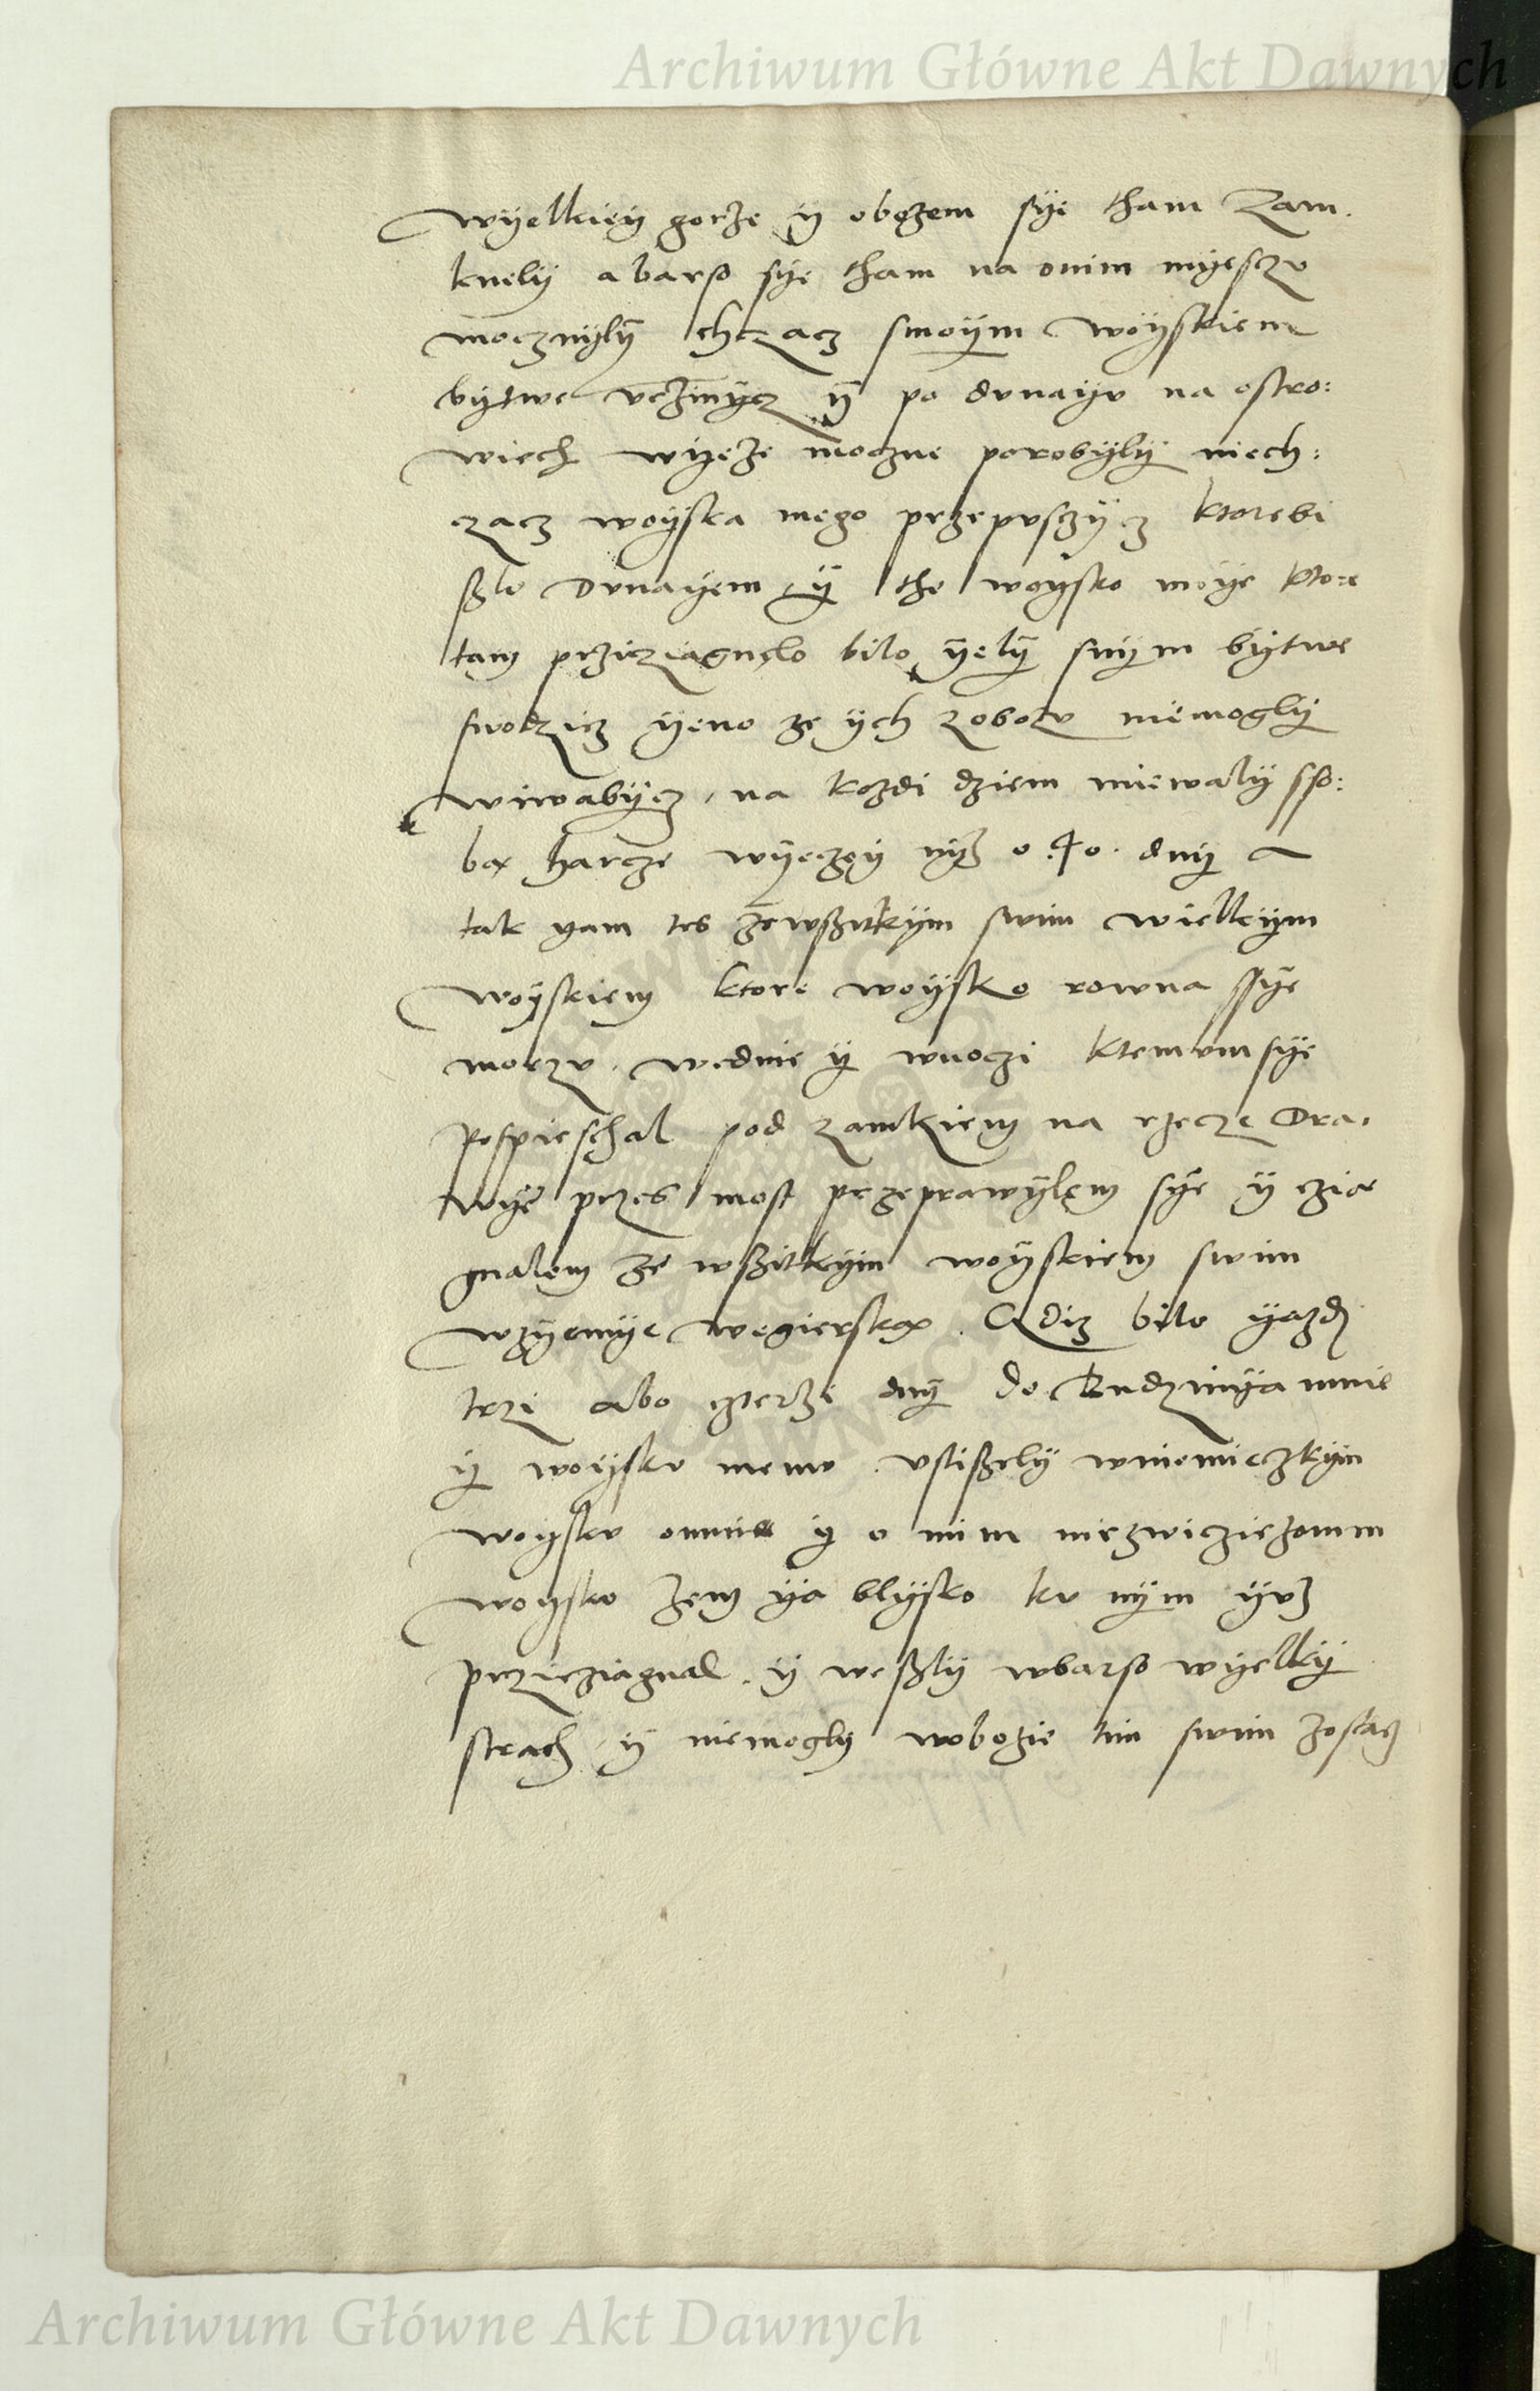 Archiwum Główne Akt Dawnych
wyelkiey gorze y obozem sye tham zam.
knely a barso sye tham na onim myesczu
mocznyly chczacz smoym woyskiem
bytwe uczinycz y po dunayu na ostro:
wiech wyeze moczne porobyly niech:
czacz woyska mego przepusczycz ktorebi
szlo dunayem y the woysko moye ktore
tam przicziagnelo bilo yely snym bytwe
swodzicz yeno ze ych zobozu niemogly
wiwabycz, na kozdi dziem miewaly sso:
ba harcze wyeczey nyz o .40. dny a
tak yam tes zewszitkym swim wielkym
woyskiem ktore woysko rowna ssye
morzu, wednie y wnoczi ktemum sye
Pospieschal pod zamkiem na rzecze Dra,
wye przes most przeprawylem sye y czia
gnalem ze wszitkym woyskiem swim
wzyemye wegierska. Gdiz bilo yazdy
trzi abo czterzi dny do Budzinya mnie
y woysku memu uslissely wniemieczkym
woysku omnie y o mim niezwicziezonim
woysku zem ya blysko ku nym yuz
prziczziagnal. y weszly wbarso wyelky
strach, y niemogly wobozie tim swim zostacz
Archiwum Główne Akt Dawnych